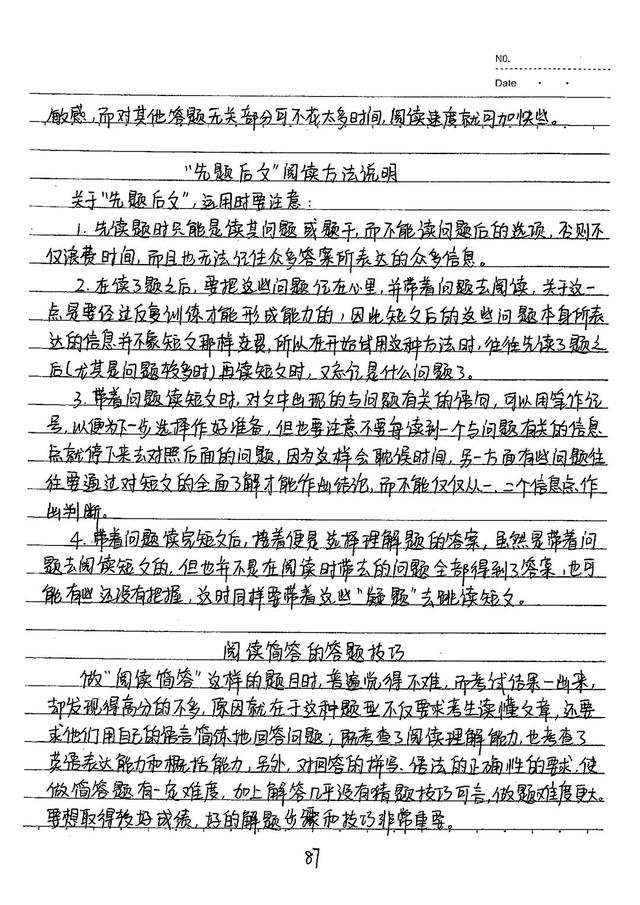 NO.
Date
敏感,而对其他答题无关部分可不花太多时间,阅读速度就可加快些。
"先题后文"阅读方法说明
关于"先题后文",运用时要注意:
1. 先读题时只能是读其问题或题干,而不能读问题后的选项,否则不
仅浪费时间,而且也无法记住众多答案所表达的众多信息。
2. 在读了题之后,要把这些问题记在心里,并带着问题去阅读,关于这一
点是要经过反复训练才能形成能力的,因此短文后的这些问题本身所表
达的信息并不象短文那样连贯,所以在开始试用这种方法时,往往先读了题之
后(尤其是问题较多时)再读短文时,又忘记是什么问题了。
3. 带着问题读短文时,对文中出现的与问题有关的语句,可以用笔作记
号,以便为下一步选择作好准备,但也要注意不要每读到一个与问题有关的信息
点就停下来去对照后面的问题,因为这样会耽误时间,另一方面有些问题往
往要通过对短文的全面了解才能作出结论,而不能仅仅从一、二个信息点作
出判断。
4. 带着问题读完短文后,接着便是选择理解题的答案,虽然是带着问
题去阅读短文的,但也并不是在阅读时带去的问题全部得到了答案,也可
能有些还没有把握,这时同样要带着这些"疑题"去跳读短文。
阅读简答的答题技巧
做"阅读简答"这样的题目时,普遍觉得不难,而考试结果一出来,
却发现得高分的不多,原因就在于这种题型不仅要求考生读懂文章,还要
求他们用自己的语言简练地回答问题;既考查了阅读理解能力,也考查了
英语表达能力和概括能力,另外,对回答的拼写、语法的正确性的要求,使
做简答题有一定难度,加上解答几乎没有猜题技巧可言,做题难度更大。
要想取得较好成绩,好的解题步骤和技巧非常重要。
87